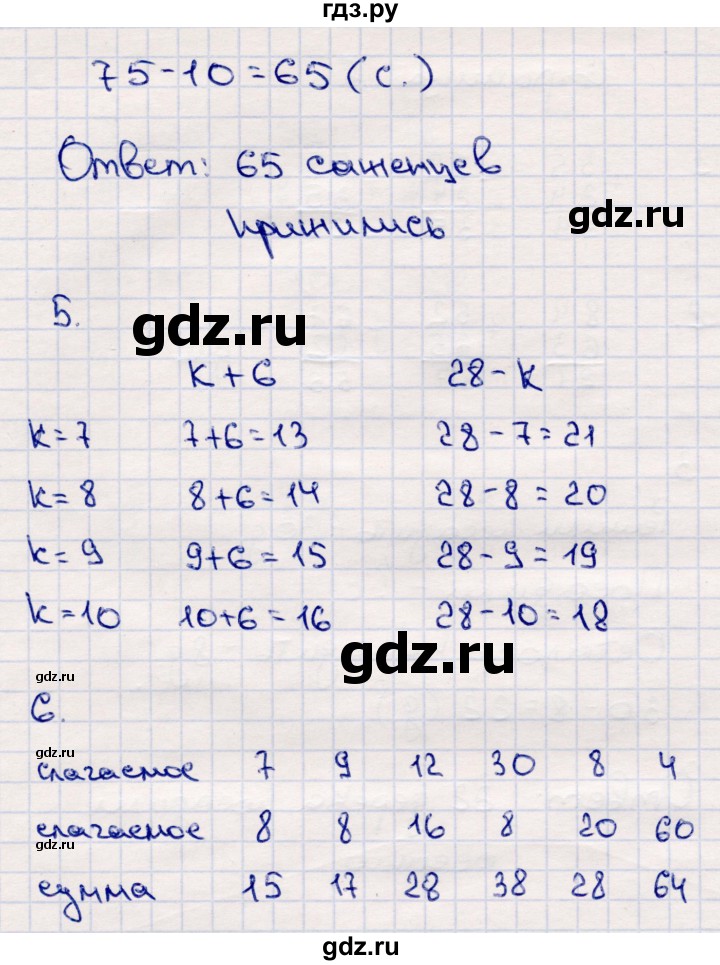 гдз.ру
75-10=65 (с.)
Ответ: 65 саженцев
прижились
gdz.ru
5.
gdz.ru
k+6 28-k
k=7 7+6=13 28-7=21
k=8 8+6=14 28-8=20
k=9 9+6=15 28-9=19
k=10 10+6=16 28-10=18
gdz.ru
gdz.ru
6.
gdz.ru
слагаемое 7 9 12 30 8 4
слагаемое 8 8 16 8 20 60
gdz.ru
сумма 15 17 28 38 28 64
gdz.ru